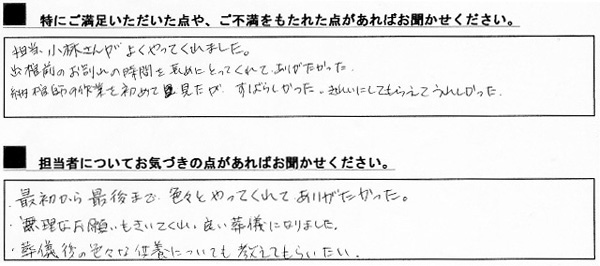 ■ 特にご満足いただいた点や、ご不満をもたれた点があればお聞かせください。
担当 小林さんがよくやってくれました。
出棺前のお別れの時間を長めにとってくれてありがたかった.
納棺師の作業を初めて見たが すばらしかった。きれいにしてもらえてうれしかった.
■ 担当者についてお気づきの点があればお聞かせください。
・最初から最後まで 色々とやってくれてありがたかった。
・無理なお願いもきいてくれ、良い葬儀になりました.
・葬儀後の色々な供養についても 教えてもらいたい.